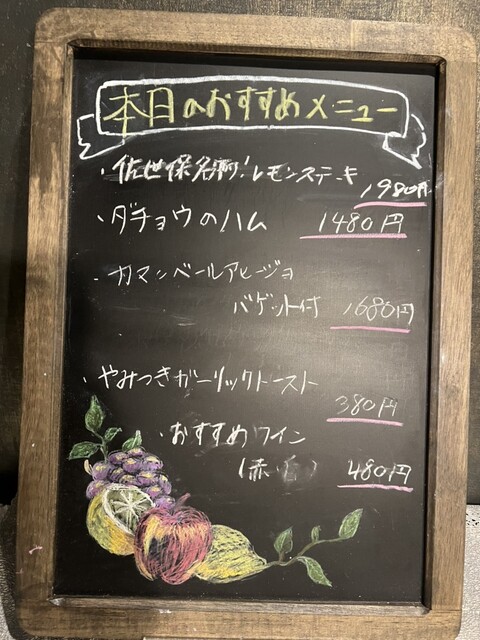 本日のおすすめメニュー
・佐世保名物!レモンステーキ 1980円
・ダチョウのハム 1480円
・カマンベールアヒージョ
バゲット付 1680円
・やみつきガーリックトースト
380円
・おすすめワイン
(赤・白) 480円